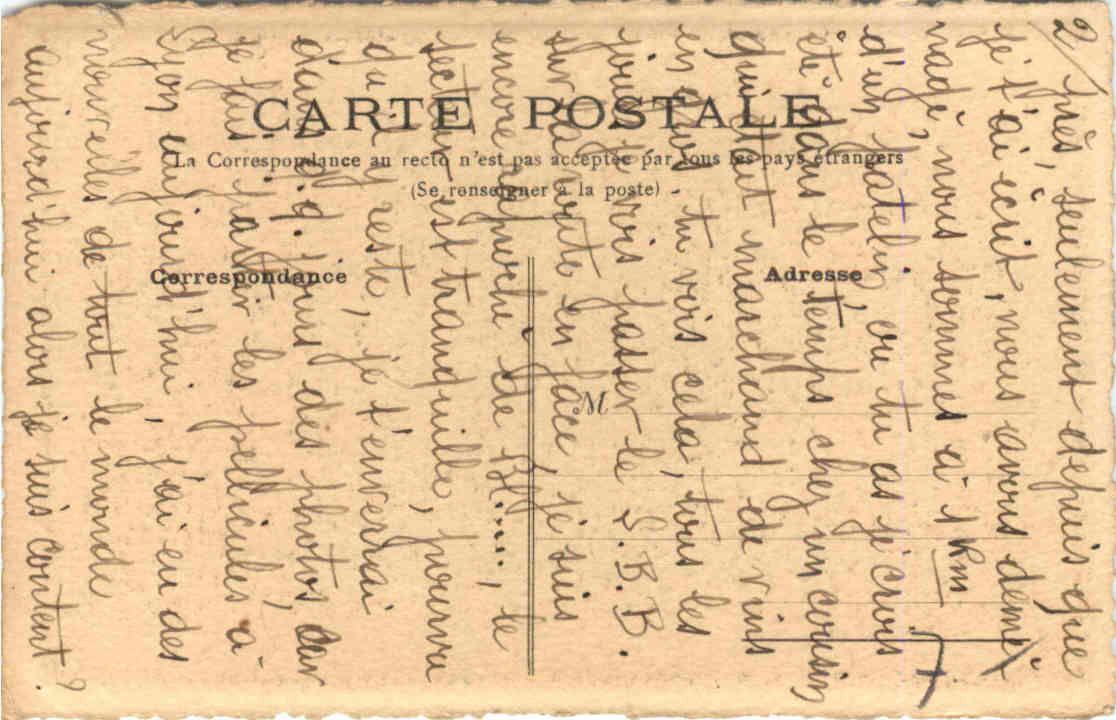 CARTE POSTALE
La Correspondance au recto n'est pas acceptée par tous les pays étrangers
(Se renseigner à la poste)
Correspondance
Adresse
M
2/ près, seulement depuis que
je t'ai écrit, nous avons démé
nagé, nous sommes à 1 km
d'un patelin où tu as je crois
été dans le temps chez un cousin
qui était marchand de vins
en gros tu vois cela, tous les
jours je vois passer le S.B.B.
sur la route en face je suis
encore de
secteur est tranquille, pourvu
que ça reste, je t'enverrai
d'ici q.q. jours des photos car
je fais partir les pellicules à
Lyon aujourd'hui, j'ai eu des
nouvelles de tout le monde
aujourd'hui alors je suis content.